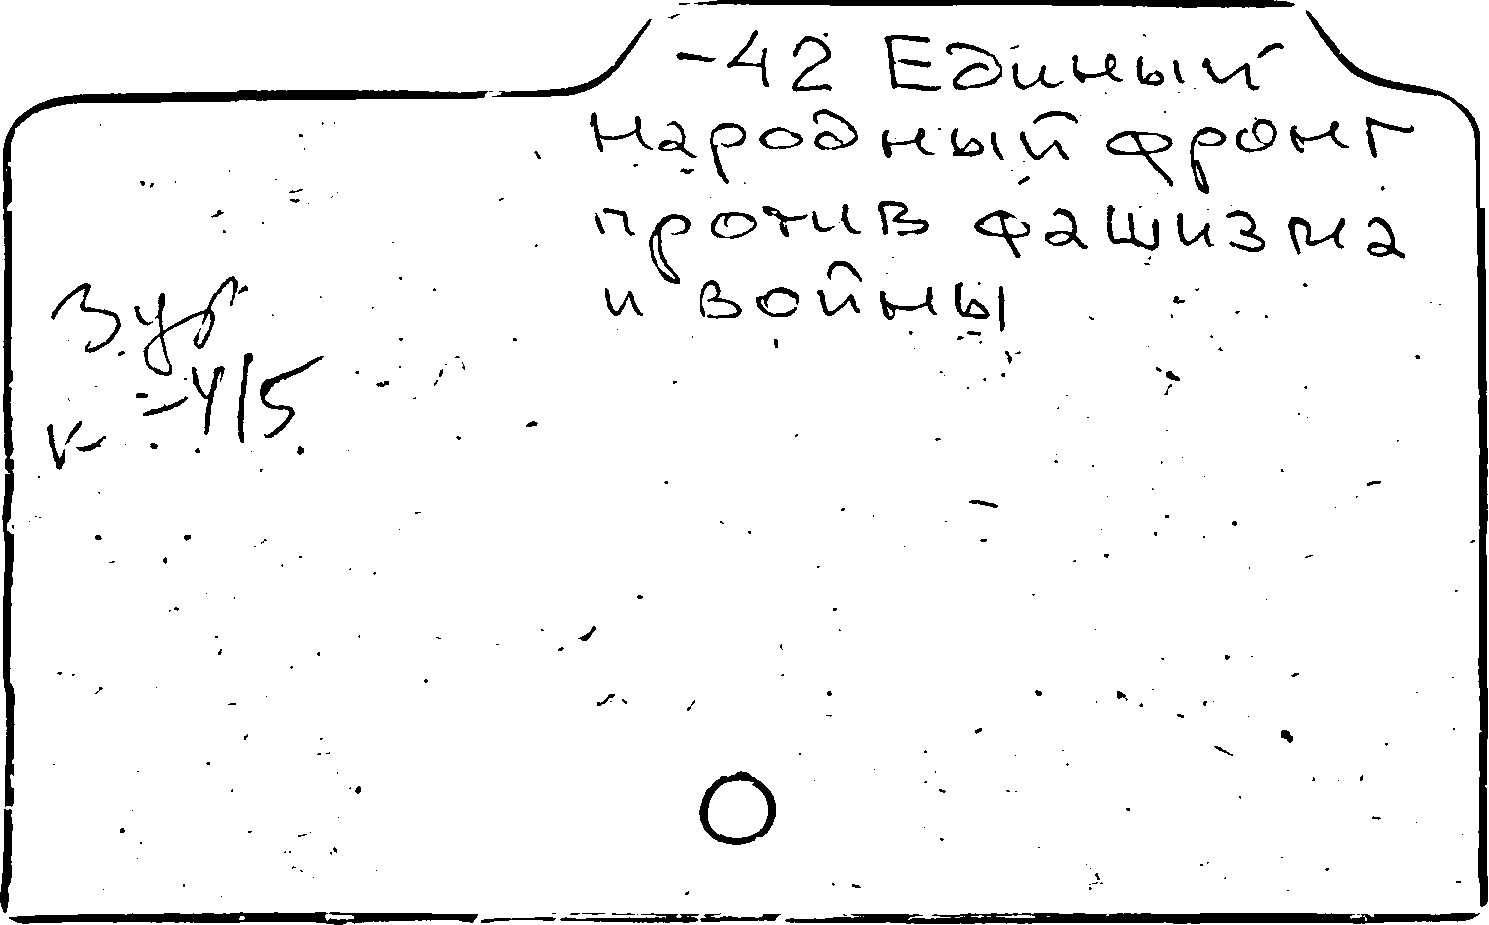 -42 Единый
народный фронт
против фашизма
и войны